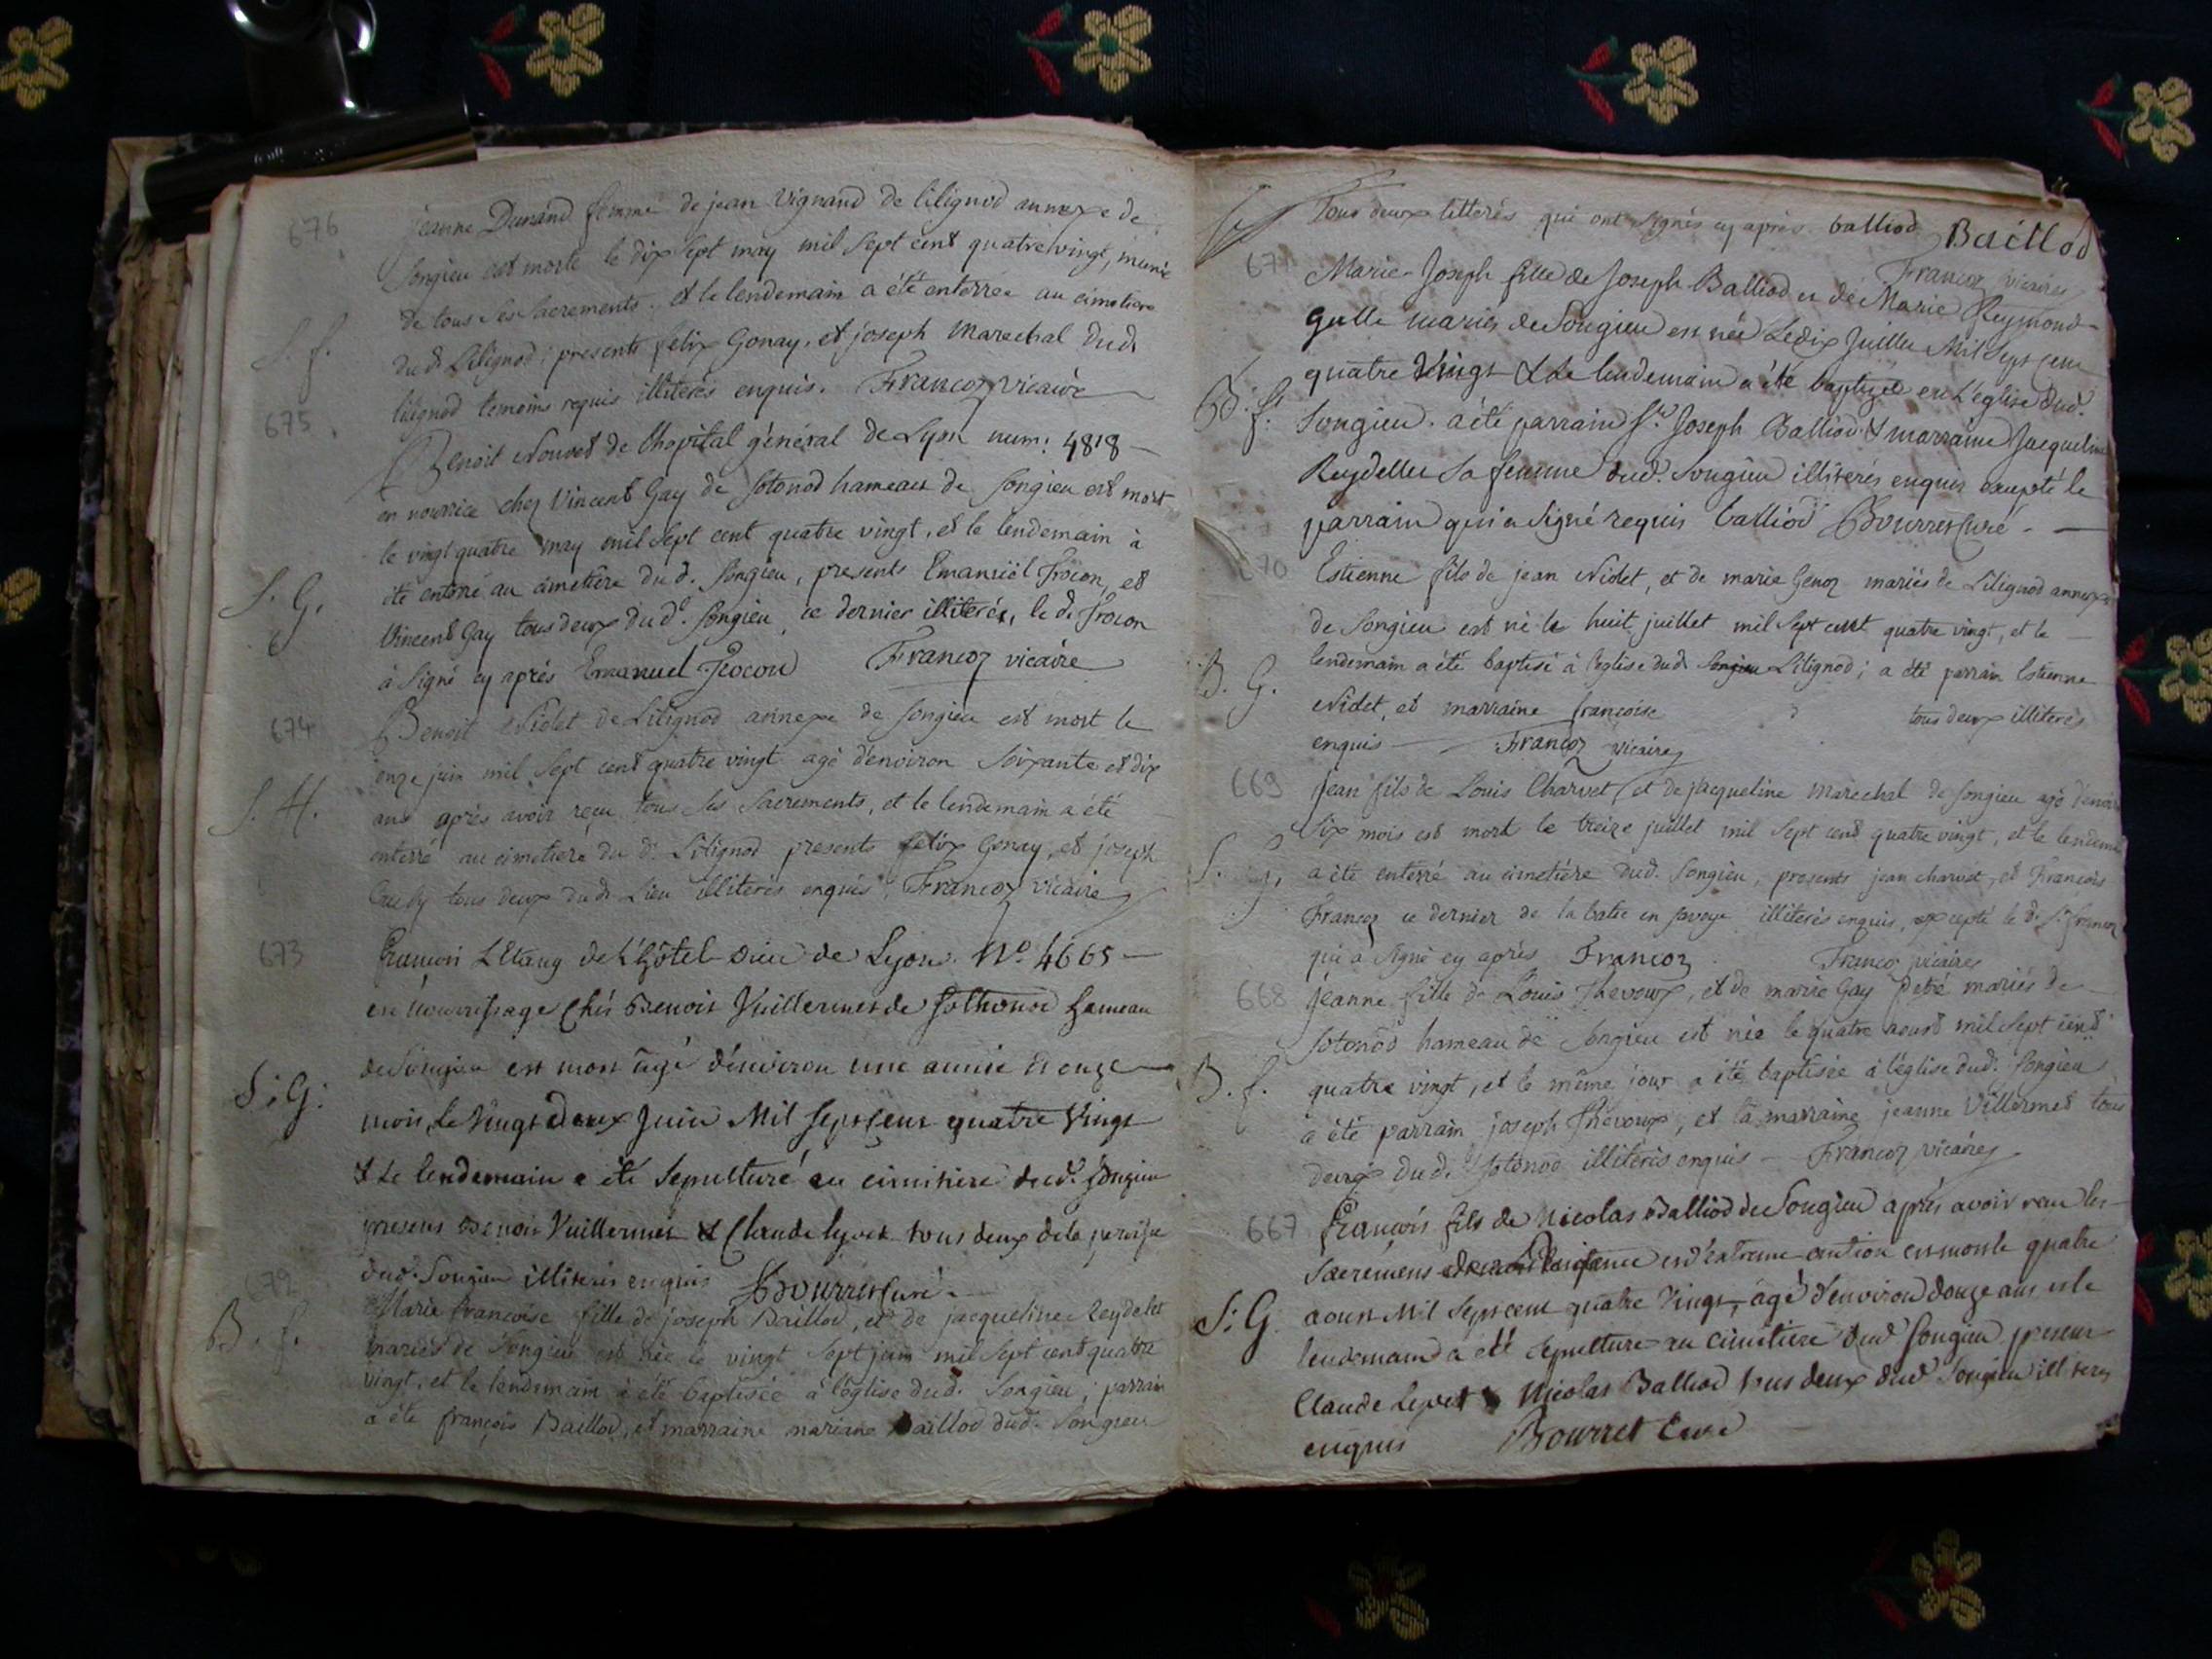 676
jeanne Dunand femme de jean Vignand de lilignod annexe de
Songieu est morte le dix sept may mil Sept cent quatre vingt, munie
de tous ses Sacrements. et le lendemain a été enterrée au cimetiere
S. f.
du d. Lilignod; presents felix Gonay, et joseph Marechal dud.
lilignod temoins requis illiterés enquis. Francoz vicaire
675
Benoit Nouvet de l'hopital général de Lyon num: 4818 —
en nourrice chez Vincent Gay de Sotonod hameau de Songieu est mort
le vingt quatre may mil Sept cent quatre vingt, et le lendemain à
S. G.
été enterré au cimetiere du d. Songieu, presents Emanuël Trocon, et
Vincent Gay tous deux du d. Songieu, ce dernier illiterés, le d. Trocon
à Signé cy après Emanuel Trocon Francoz vicaire
674
Benoit Nidet de Lilignod annexe de Songieu est mort le
onze juin mil Sept cent quatre vingt agé d'environ Soixante et dix
S. H.
ans après avoir reçu tous Ses Sacrements, et le lendemain a été
enterré au cimetiere du d. Lilignod presents felix Gonay, et joseph
tous deux du d. Lieu illiterés enquis, Francoz vicaire
673
François Létang de L'hôtel Dieu de Lyon. N° 4665 —
en nourrissage chés Benoit Vuillermet de Sothonod hameau
de Songieu est mort âgé d'environ une année et onze
S: G:
mois, le Vingt deux Juin Mil Sept cent quatre Vingt
& le lendemain a été Sepulturé au cimitiere dud. Songieu
presens Benoit Vuillermet & Claude Lyvet tous deux de la paroisse
dud. Songieu illiterés enquis Bourret Curé.
672
B. f.
Marie Francoise fille de joseph Baillod, et de jacqueline Reydelet
mariés de Songieu est née le vingt Sept juin mil Sept cent quatre
vingt, et le lendemain à été baptisée à l'église dud. Songieu; parrain
a été françois Baillod, et marraine mariane Baillod dud. Songieu
Tous deux litterés qui ont signés cy après. balliod Baillod
Francoz vicaire
671
Marie-Joseph fille de Joseph Balliod et de Marie Reymond-
Gulle mariés de Songieu est née Le dix Juillet Mil Sept Cent
quatre Vingt & Le lendemain a été baptizée en L'église dud.
B. f.
Songieu. a été parrain Sr. Joseph Balliod & marraine Jacqueline
Reydellet Sa femme dud. Songieu illiterés enquis excepté le
parrain qui a Signé requis balliod Bourret Curé. —
670
Estienne fils de jean Nidet, et de marie Genoz mariés de Lilignod annexe
de Songieu est né le huit juillet mil Sept cent quatre vingt, et le —
B. G.
lendemain a été baptisé à l'eglise dud. Songieu Lilignod; a été parrain Estienne
Nidet, et marraine francoise tous deux illiterés
enquis — Francoz vicaire
669
jean fils de Louis Charvet et de jacqueline Marechal de Songieu agé d'environ
Six mois est mort le treize juillet mil Sept cent quatre vingt, et le lendemain
S. g.
a été enterré au cimetiére dud. Songieu, presents jean charvet, et François
Francoz ce dernier de la batie en Savoye illiterés enquis, excepté le d. Sr. francoz
qui a Signé cy après Francoz Francoz vicaire
668
jeanne fille de Louis Thevoux, et de marie Gay petit mariés de
Sotonod hameau de Songieu est née le quatre aoust mil Sept cent
B. f.
quatre vingt, et le même jour a été baptisée à l'église dud. Songieu
a été parrain joseph Thévoux, et la marraine jeanne Villermet tous
deux du d. Sotonod illiterés enquis — Francoz vicaire
667
François fils de Nicolas Balliod de Songieu après avoir reçu les
Sacremens de Penitance et d'extreme onction est mort le quatre
S: G
aoust Mil Sept cent quatre Vingt, âgé d'environ douze ans et le
lendemain a été Sepulturé au cimitiere dud. Songieu presens
Claude Lyvet & Nicolas Balliod tous deux dud. Songieu illiterés
enquis Bourret Curé